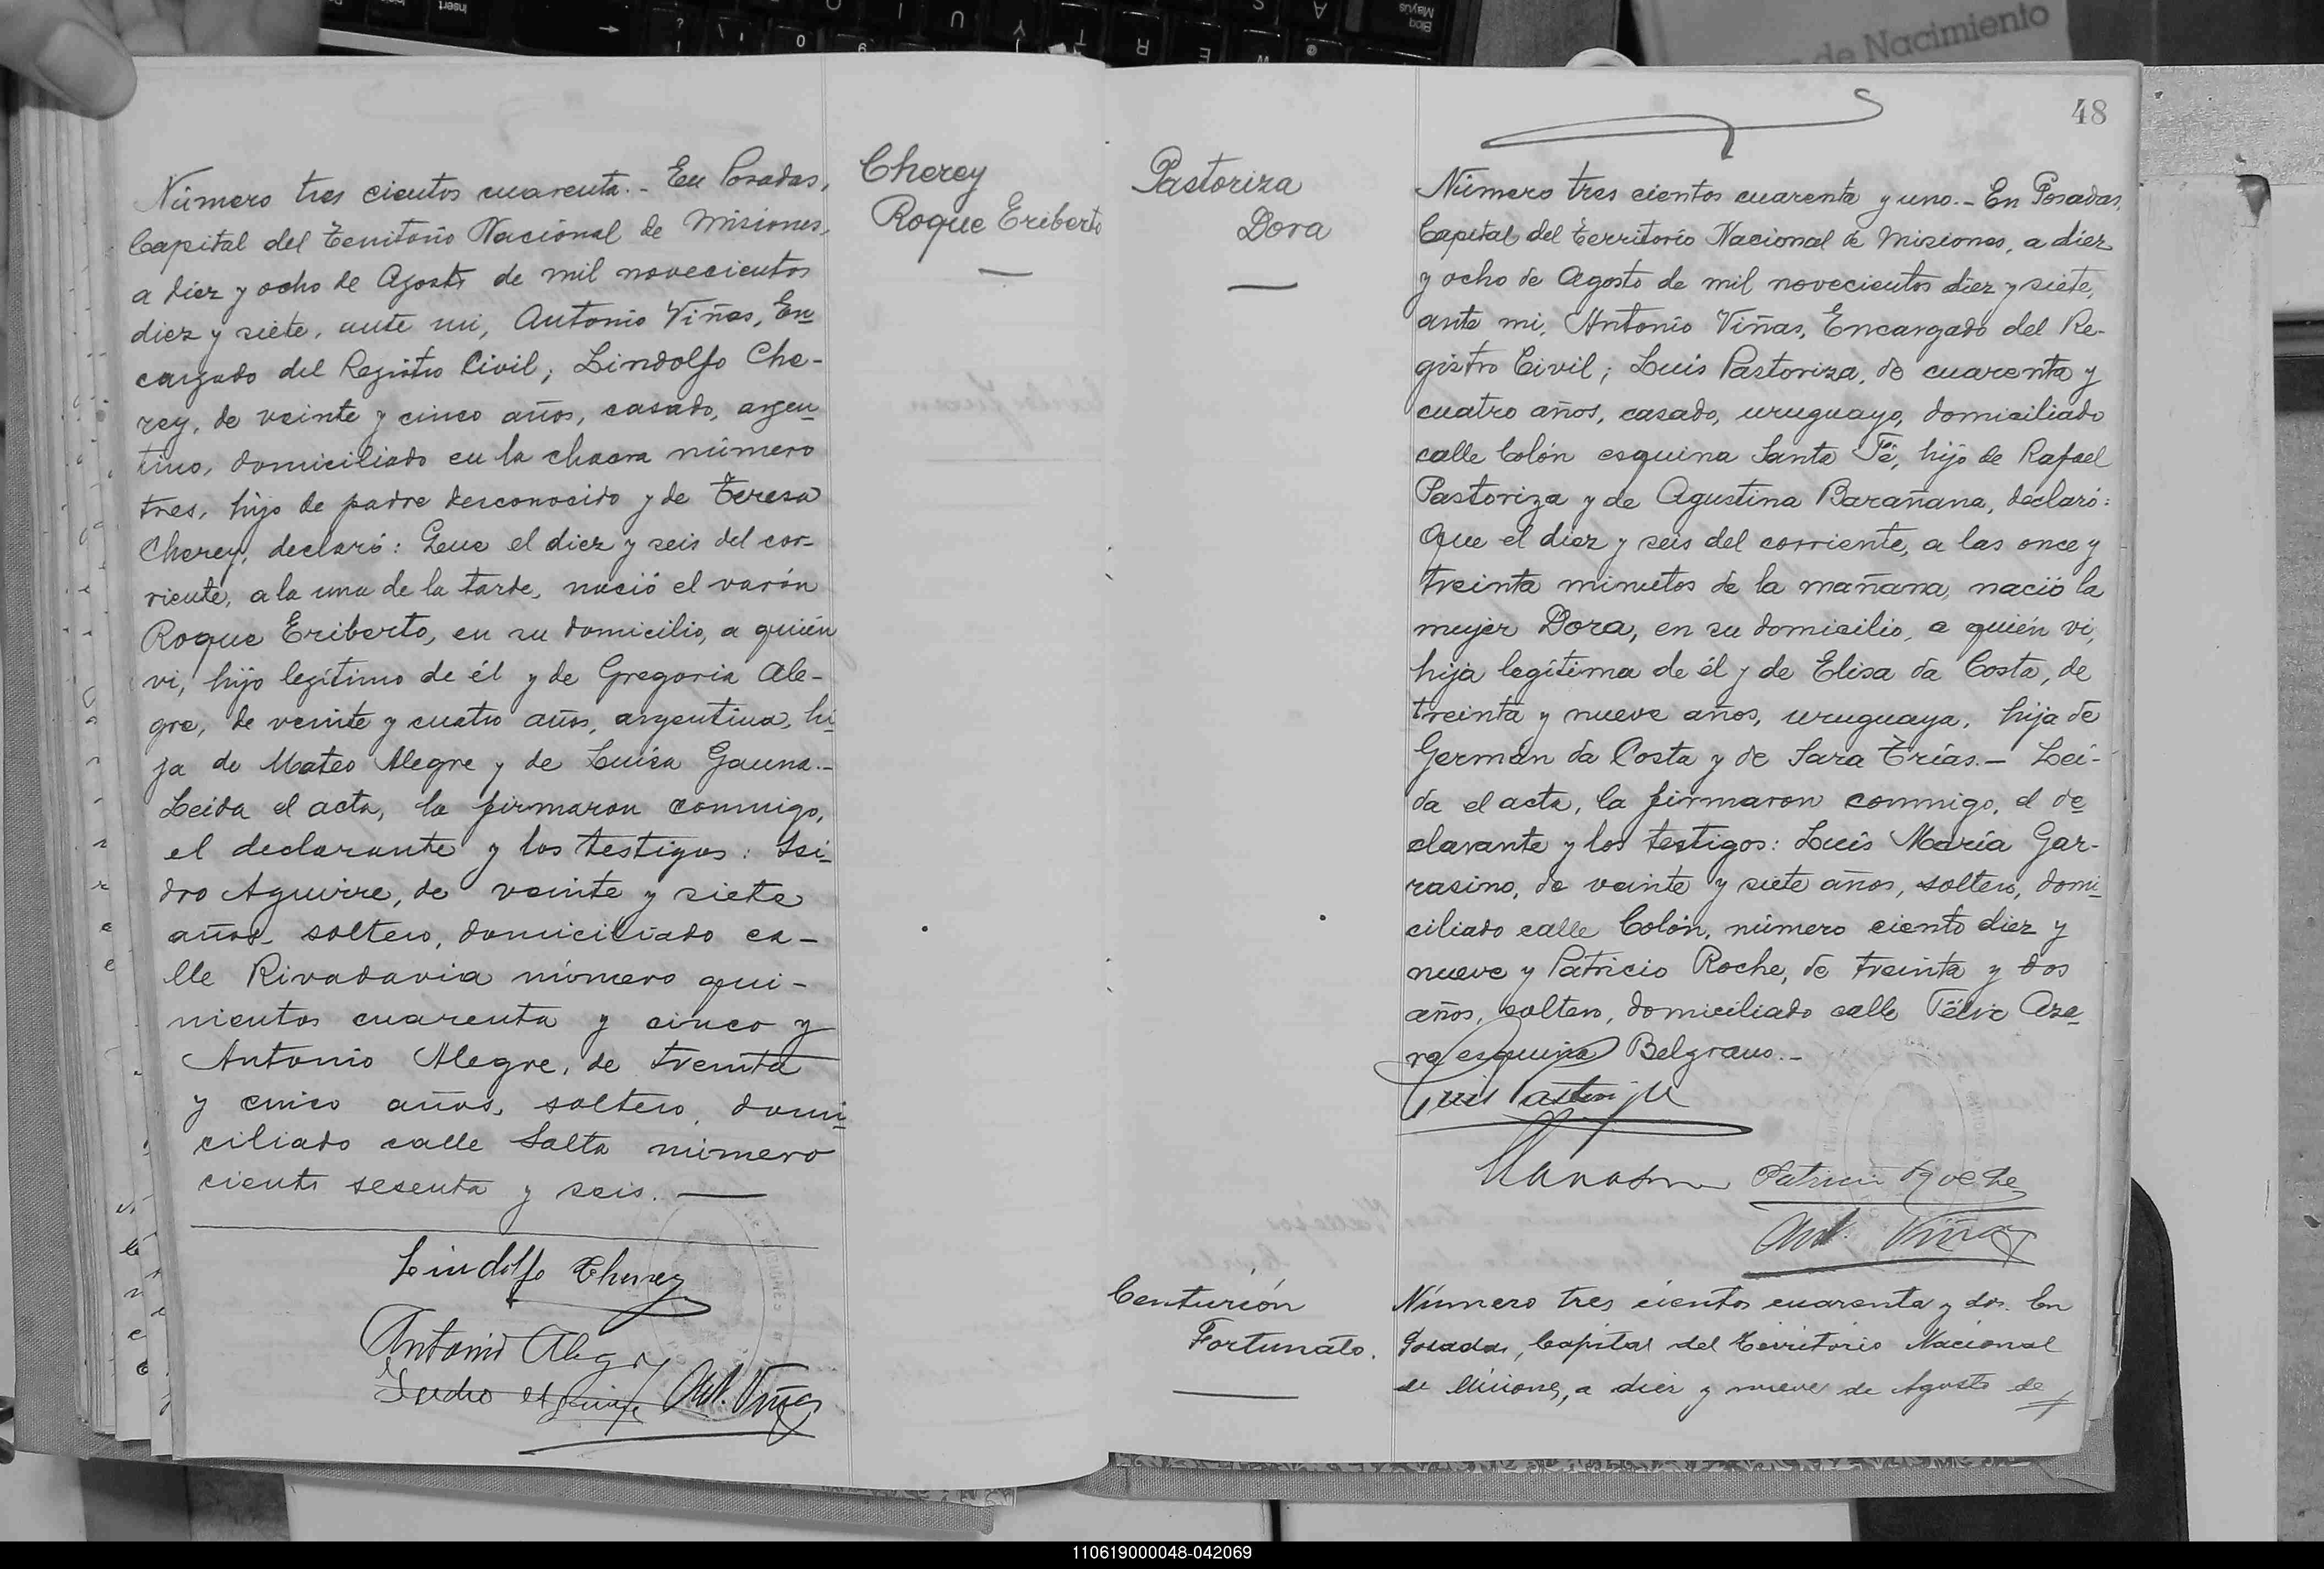 de Nacimiento
Número tres cientos cuarenta.- En Posadas,
Capital del Territorio Nacional de Misiones,
a diez y ocho de Agosto de mil novecientos
diez y siete, ante mi, Antonio Viñas, En
cargado del Registro Civil; Lindolfo Che-
rey, de veinte y cinco años, casado, argen
tino, domiciliado en la chacra número
tres, hijo de padre desconocido y de Teresa
Cherey, declaró: Que el diez y seis del cor-
riente, a la una de la tarde, nació el varón
Roque Eriberto, en su domicilio, a quién
vi, hijo legítimo de él y de Gregoria Ale-
gre, de veinte y cuatro años, argentina, hi
ja de Mateo Alegre y de Luisa Gauna.-
Leida el acta, la firmaron conmigo,
el declarante y los testigos: Isi
dro Aguirre, de veinte y siete
años, soltero, domiciliado ca-
lle Rivadavia número qui-
nientos cuarenta y cinco y
Antonio Alegre, de treinta
y cinco años, soltero, domi
ciliado calle Salta número
ciento sesenta y seis.
Lindolfo Cherey
Antonio Alegre
Isidro Aguirre Ant. Viñas
Cherey
Roque Eriberto
48
Pastoriza
Dora
Número tres cientos cuarenta y uno.- En Posadas,
Capital del Territorio Nacional de Misiones, a diez
y ocho de Agosto de mil novecientos diez y siete,
ante mi, Antonio Viñas, Encargado del Re-
gistro Civil; Luis Pastoriza, de cuarenta y
cuatro años, casado, uruguayo, domiciliado
calle Colón esquina Santa Fé, hijo de Rafael
Pastoriza y de Agustina Barañana, declaró:
Que el diez y seis del corriente, a las once y
treinta minutos de la mañana, nació la
mujer Dora, en su domicilio, a quién vi,
hija legítima de él y de Elisa da Costa, de
treinta y nueve años, uruguaya, hija de
Germán da Costa y de Sara Trías.- Lei-
da el acta, la firmaron conmigo, el de
clarante y los testigos: Luis María Gar-
rasino, de veinte y siete años, soltero, domi
ciliado calle Colón, número ciento diez y
nueve y Patricio Roche, de treinta y dos
años, soltero, domiciliado calle Félix Aza
ra esquina Belgrano.-
Luis Pastoriza
Patricio Roche
Ant. Viñas
Centurión
Fortunato.
Número tres cientos cuarenta y dos. En
Posadas, Capital del Territorio Nacional
de Misiones, a diez y nueve de Agosto de
110619000048-042069